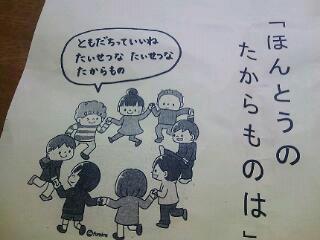 「ほんとうの
たからものは」
ともだちっていいね
たいせつな たいせつな
たからもの